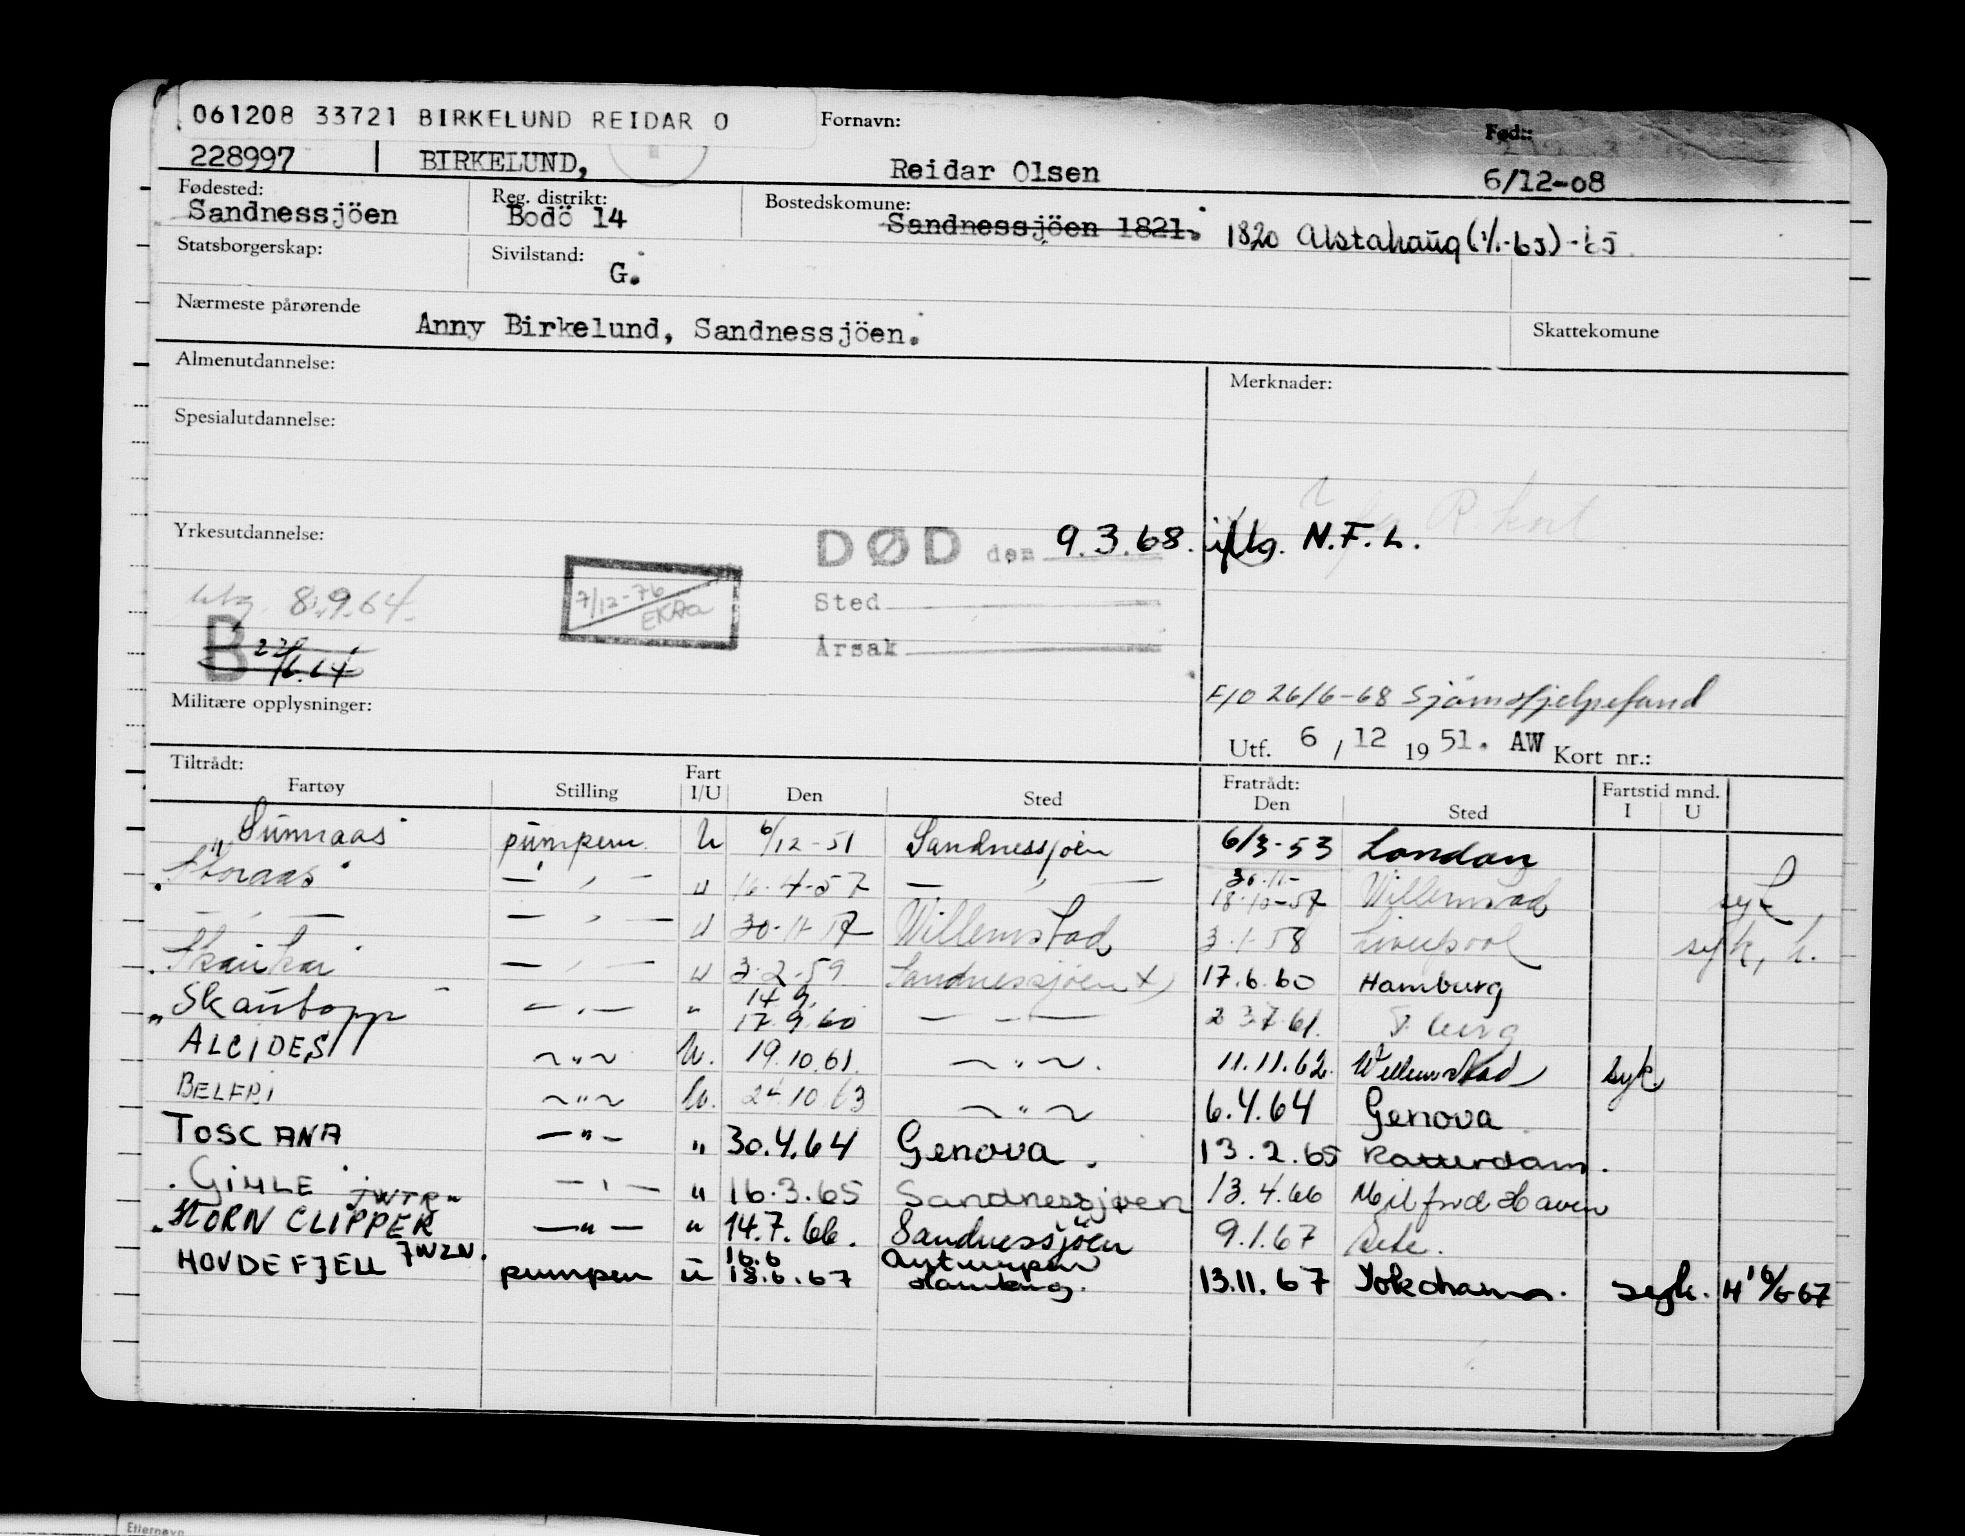 061208 33721 BIRKELUND REIDAR O
Fornavn: Født:
228997 BIRKELUND, Reidar Olsen 6/12-08
Fødested: Reg. distrikt: Bostedskomune:
Sandnessjöen Bodö 14 Sandnessjöen 1821. 1820 Alstahaug (1/1-65)-65
Statsborgerskap: Sivilstand:
G.
Nærmeste pårørende Skattekomune
Anny Birkelund, Sandnessjöen.
Almenutdannelse: Merknader:
Spesialutdannelse:
R kort
Yrkesutdannelse: DØD den 9.3.68. iflg. N.F.L.
utg. 8.9.64. 7/12-76 Sted
B 22/6.64 Årsak
F/O 26/6-68 Sjömshjelpefond
Militære opplysninger:
Utf. 6 / 12 19 51. AW Kort nr.:
Tiltrådt: Fart Fratrådt: Fartstid mnd.
Fartøy Stilling I/U Den Sted Den Sted I U
"Sunnaas" pumpem. U 6/12-51 Sandnessjöen 6/3-53 London
"Storaas" — " — u 16.4-57 — " — 30.11- 18.10-57 Willemstad syk
— " — — " — u 30-11-57 Willemstad 3.1.58 Liverpool syk, h.
"Skaukar" — " — u 3.2-59 Sandnessjöen x) 17.6.60 Hamburg
"Skautopp" — " — " 14.9. 17.9.60 — " — 23.7.61.
ALCIDES ~ " ~ U. 19.10.61. ~ " ~. 11.11.62. Willemstad syk.
BELFRI ~ " ~ U. 24.10.63 ~ " ~ 6.4.64 Genova
TOSCANA — " — " 30.4.64 Genova. 13.2.65 Rotterdam.
"GIMLE" JWTR — " — " 16.3.65 Sandnessjøen 13.4.66 Milford Haven
"STORN CLIPPER" — " — " 14.7.66. Sandnessjöen 9.1.67 Sete.
HOVDEFJELL JWZN. pumpem u 16.6 18.6.67 Antwerpen Hamburg. 13.11.67 Yokohama. syk. H 16/6-67
Etternavn